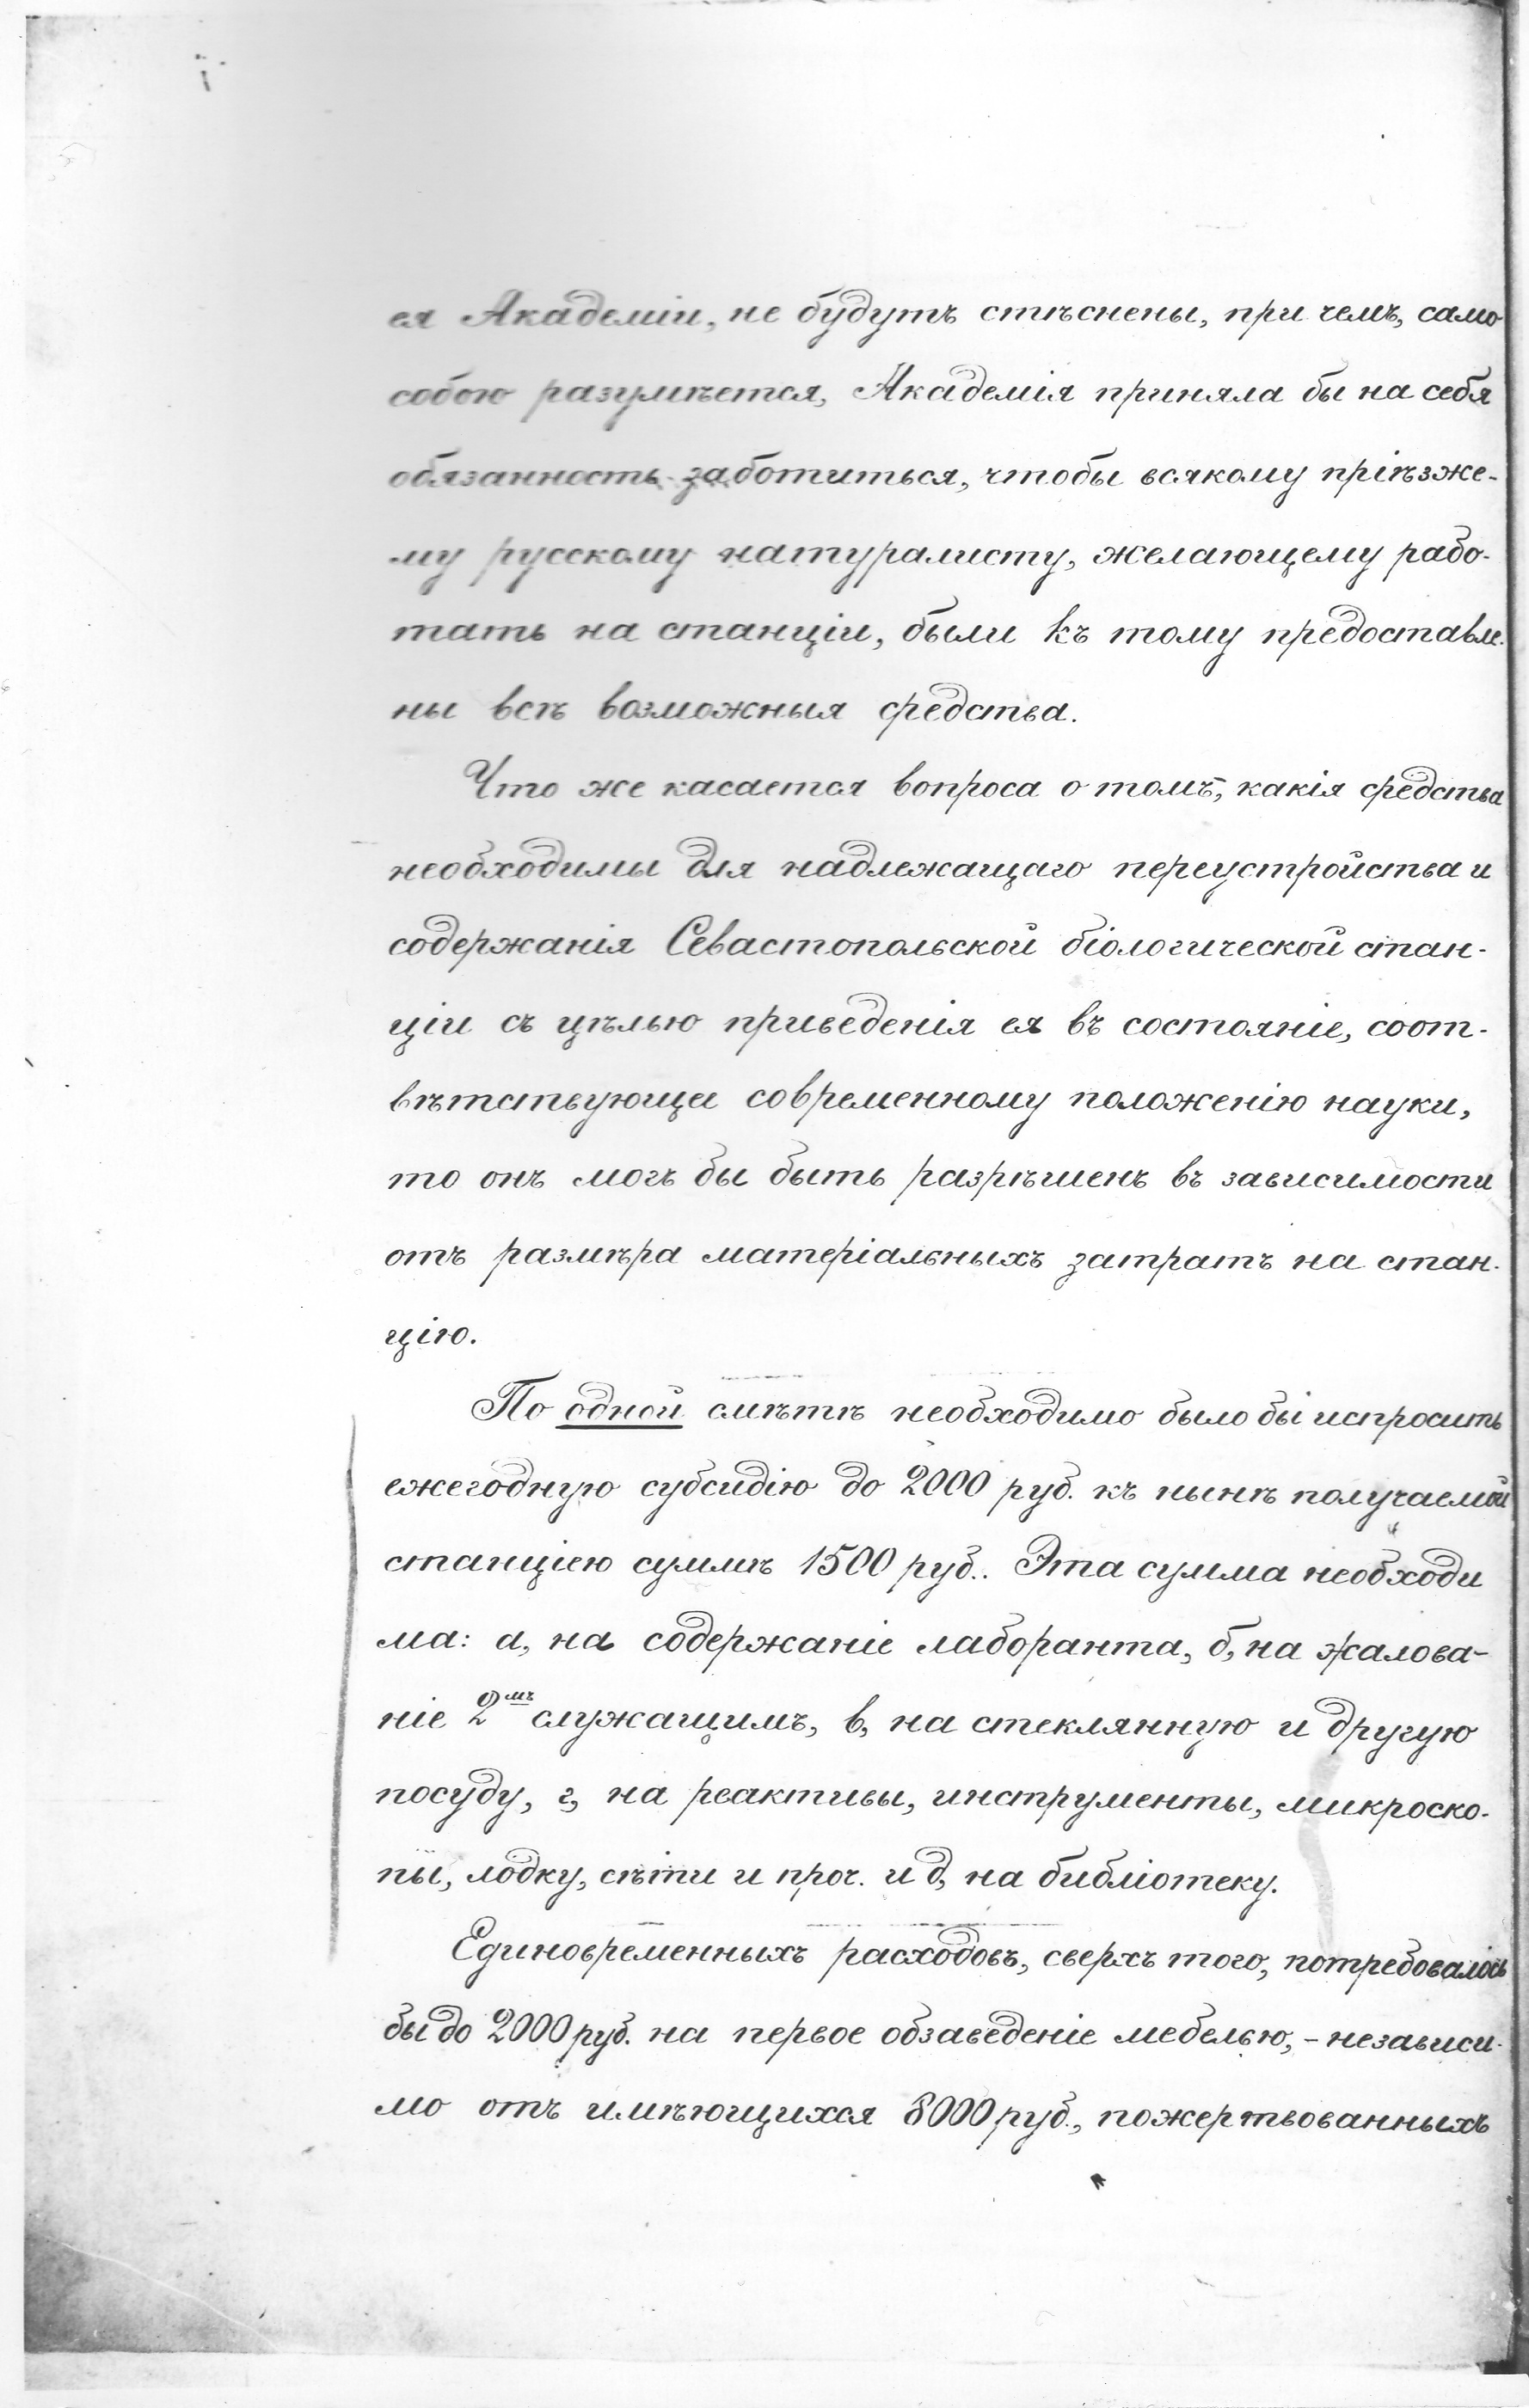 ея Академіи, не будутъ стѣснены, при чемъ, само
собою разумѣется, Академія приняла бы на себя
обязанность заботиться, чтобы всякому пріѣзже-
му русскому натуралисту, желающему рабо-
тать на станціи, были къ тому предоставле-
ны всѣ возможныя средства.
Что же касается вопроса о томъ, какія средства
необходимы для надлежащаго переустройства и
содержанія Севастопольской біологической стан-
ціи съ цѣлью приведенія ея въ состояніе, соот-
вѣтствующее современному положенію науки,
то онъ могъ бы быть разрѣшенъ въ зависимости
отъ размѣра матеріальныхъ затратъ на стан-
цію.
По одной смѣтѣ необходимо было бы испросить
ежегодную субсидію до 2000 руб. къ нынѣ получаемой
станціею суммѣ 1500 руб.. Эта сумма необходи
ма: а, на содержаніе лаборанта, б, на жалова-
ніе 2мъ служащимъ, в, на стеклянную и другую
посуду, г, на реактивы, инструменты, микроско-
пы, лодку, сѣти и проч. и д, на библіотеку.
Единовременныхъ расходовъ, сверхъ того, потребовалось
бы до 2000 руб. на первое обзаведеніе мебелью, - независи-
мо отъ имѣющихся 8000 руб., пожертвованныхъ